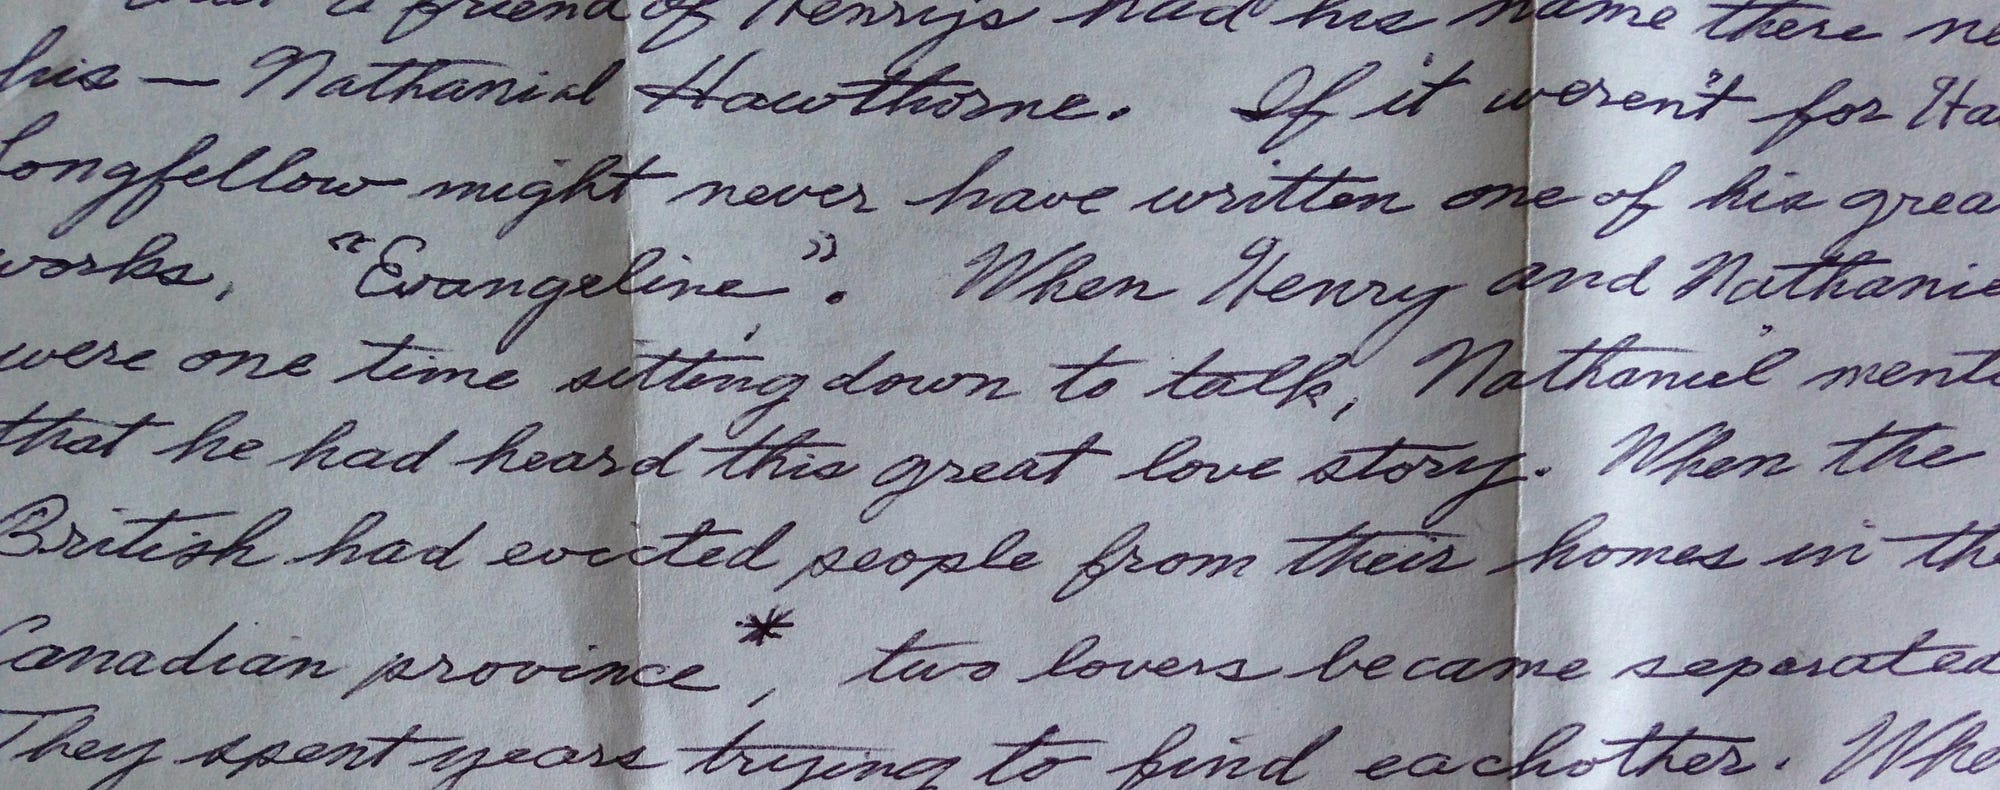 a friend of Henrys had his name there ne
his — Nathanial Hawthorne. If it weren't for Ha
Longfellow might never have written one of his grea
works, "Evangeline". When Henry and Nathanie
were one time sitting down to talk, Nathaniel menti
that he had heard this great love story. When the
British had evicted people from their homes in the
Canadian province*, two lovers became separated
They spent years trying to find eachother. Whe